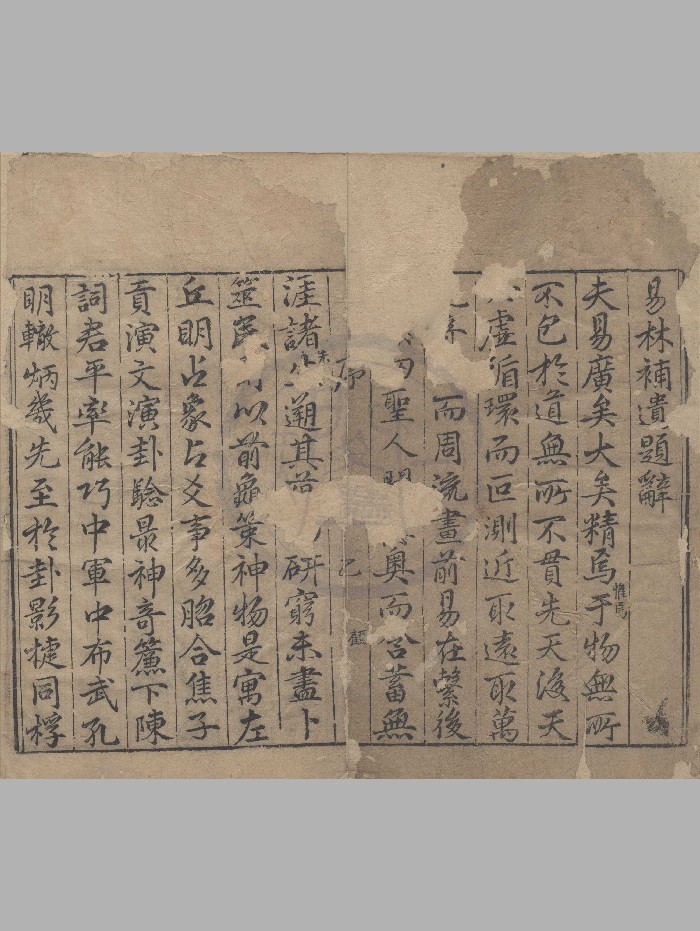 易林補遺題辭
夫易廣矣大矣精焉于物無所
惟焉
不包於道無所不貫先天後天
虛循環而叵測近取遠取萬
而周流畫前易在繫後
聖人
奧而含蓄無
序
涯諸
遡其
研窮未盡卜
筮
以前龜策神物是寓左
丘明占象占爻事多昭合焦子
貢演文演卦騐最神奇簾下陳
詞君平率能巧中軍中布武孔
明轍炳幾先至於卦影捷同桴